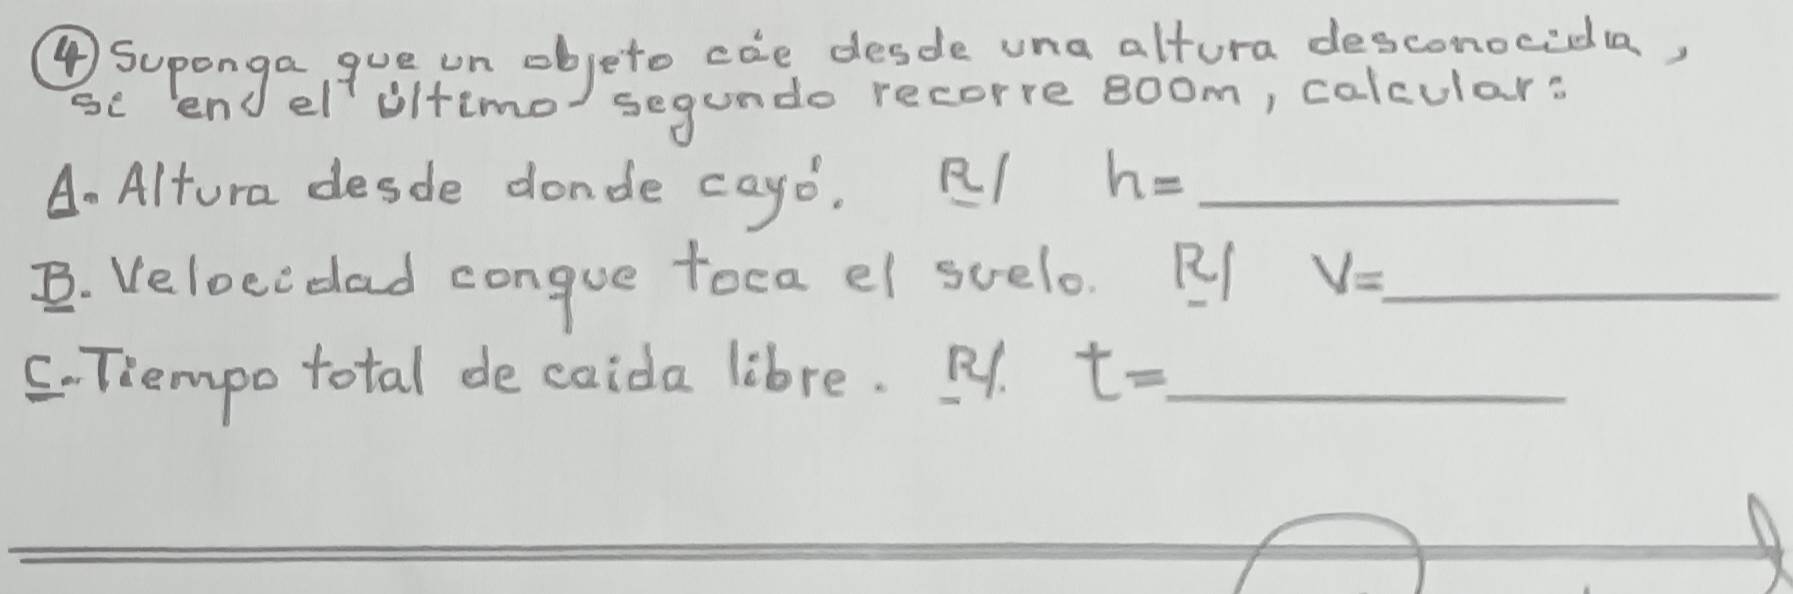 ④ Suponga que un objeto cáe desde una altura desconocida,
si en el último segundo recorre 800m, calcular:
A. Altura desde donde cayó. R/ h=__________
B. Velocidad conque toca el suelo. R/ V=__________
C. Tiempo total de caida libre. R/. t=__________